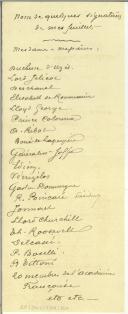 Nom de quelques signataires
de mes feuilles
Mesdames - messieurs:
Duchesse d'Uzès.
Lord Jellicoe
Deschanel
Elisabeth de Roumanie
Lloyd George
Prince Colonna
A. Ribot
Boni de Castellane
Général Joffre
Venizelos
Gaston Doumergue
R. Poincaré
Jonnart
Lord Churchill
Th. Roosevelt
Delcassé
P. Boselli
B. Tittoni
20 membres de l'académie
Française
etc etc